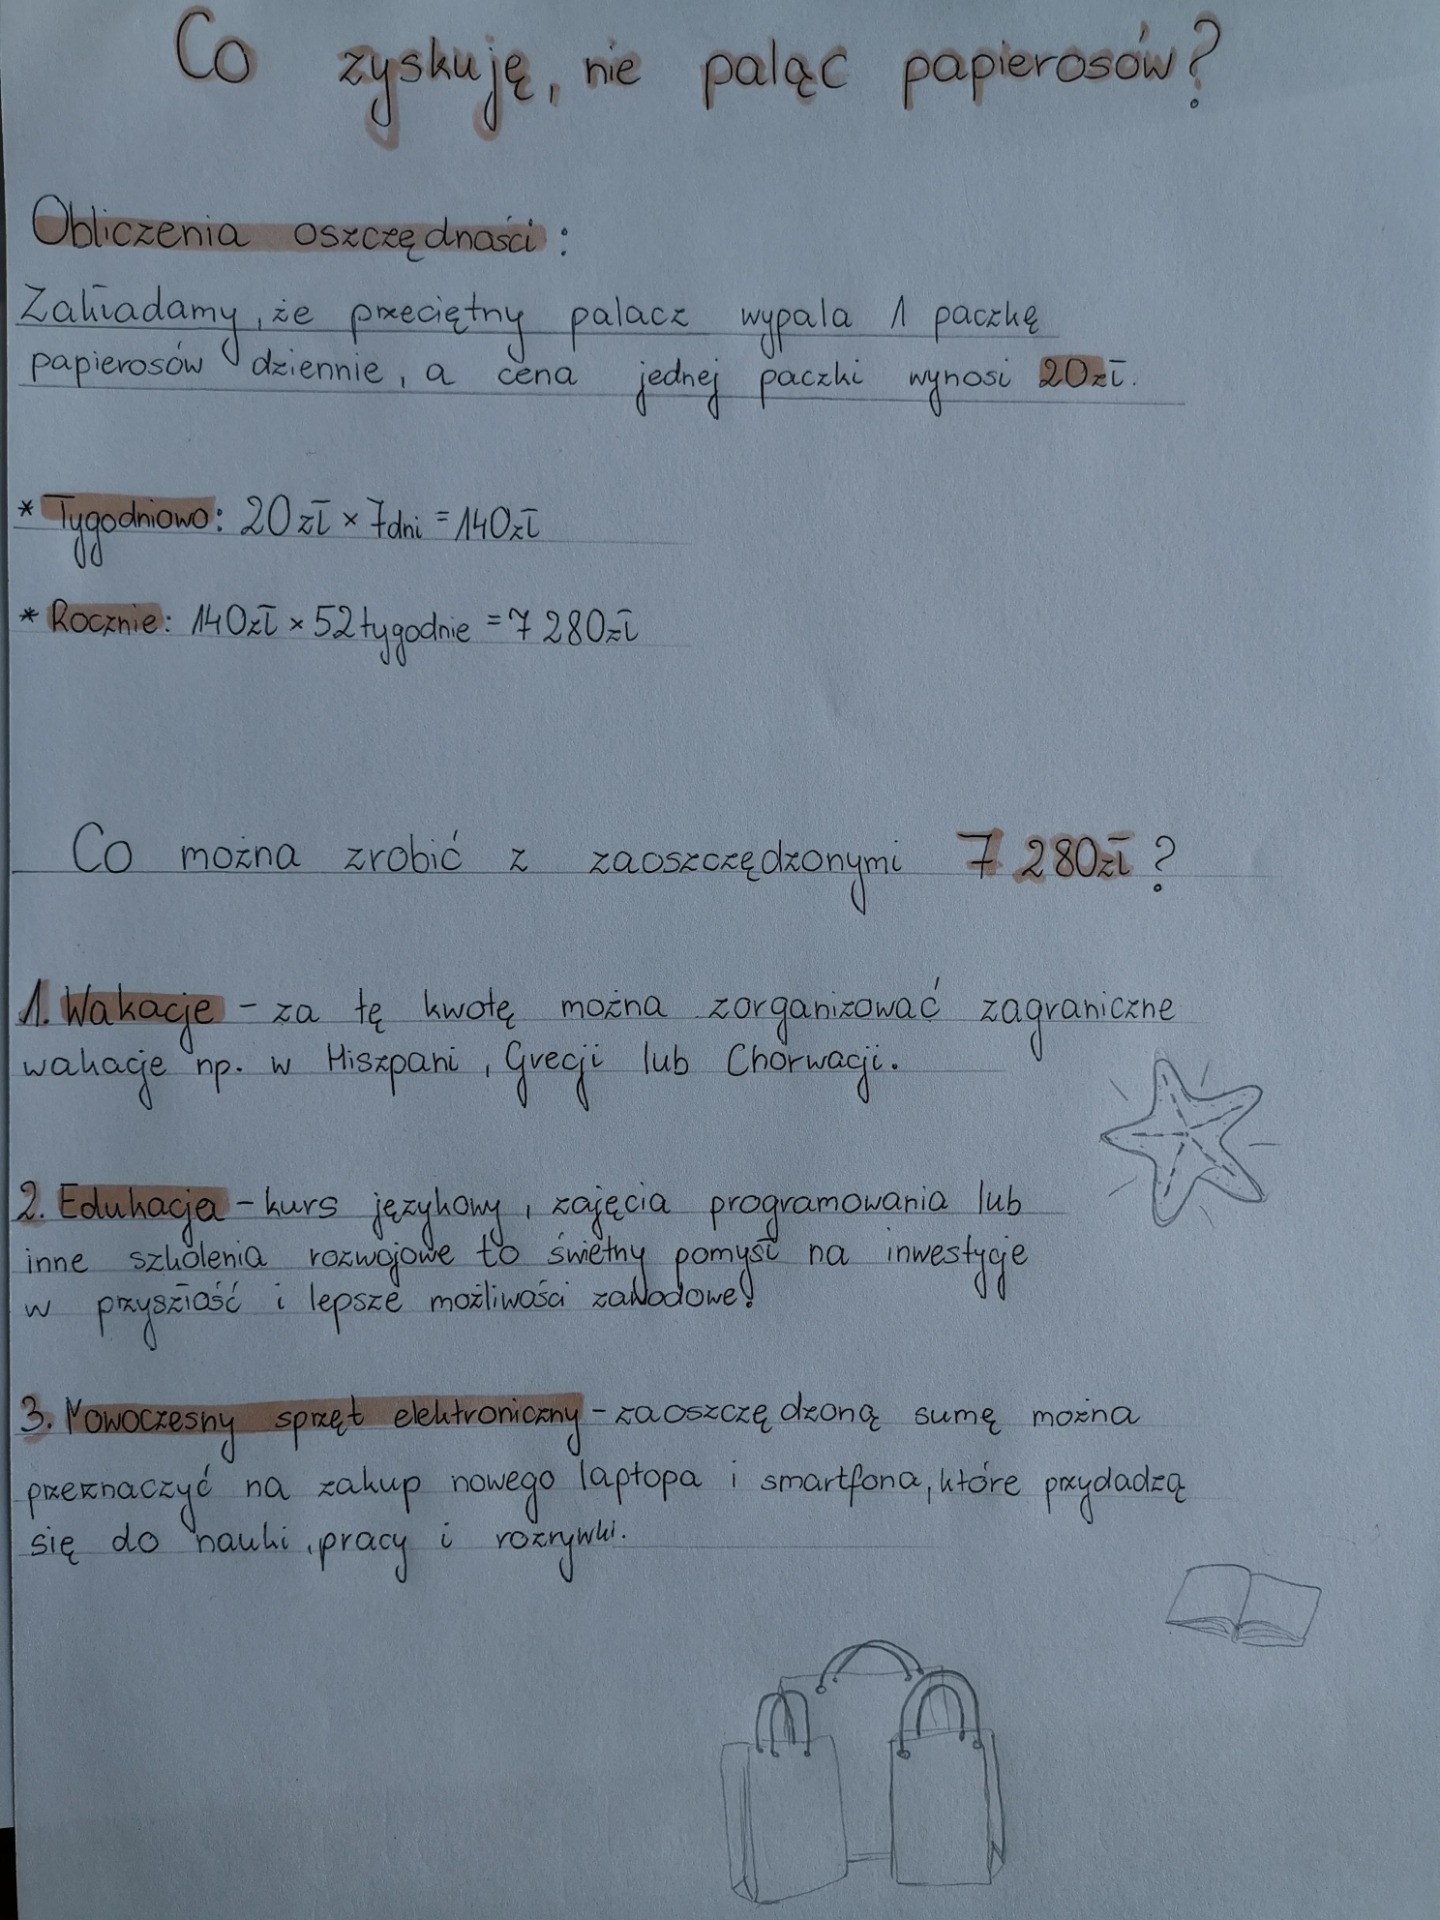 Co zyskuję, nie paląc papierosów?
Obliczenia oszczędności:
Zakładamy, że przeciętny palacz wypala 1 paczkę
papierosów dziennie, a cena jednej paczki wynosi 20zł.
* Tygodniowo: 20zł × 7dni = 140zł
* Rocznie: 140zł × 52tygodnie = 7 280zł
Co można zrobić z zaoszczędzonymi 7 280zł?
1. Wakacje - za tę kwotę można zorganizować zagraniczne
wakacje np. w Hiszpani, Grecji lub Chorwacji.
2. Edukacja - kurs językowy, zajęcia programowania lub
inne szkolenia rozwojowe to świetny pomysł na inwestycje
w przyszłość i lepsze możliwości zawodowe!
3. Nowoczesny sprzęt elektroniczny - zaoszczędzoną sumę można
przeznaczyć na zakup nowego laptopa i smartfona, które przydadzą
się do nauki, pracy i rozrywki.